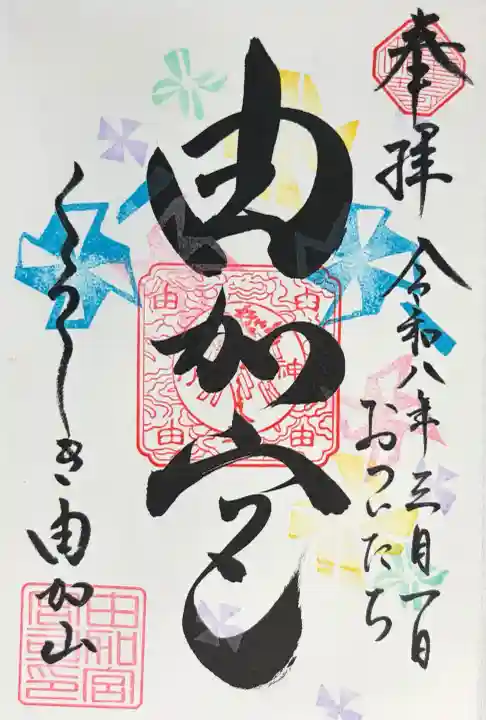 奉拝
令和八年三月一日
おついたち
由加宮
くらしき由加山